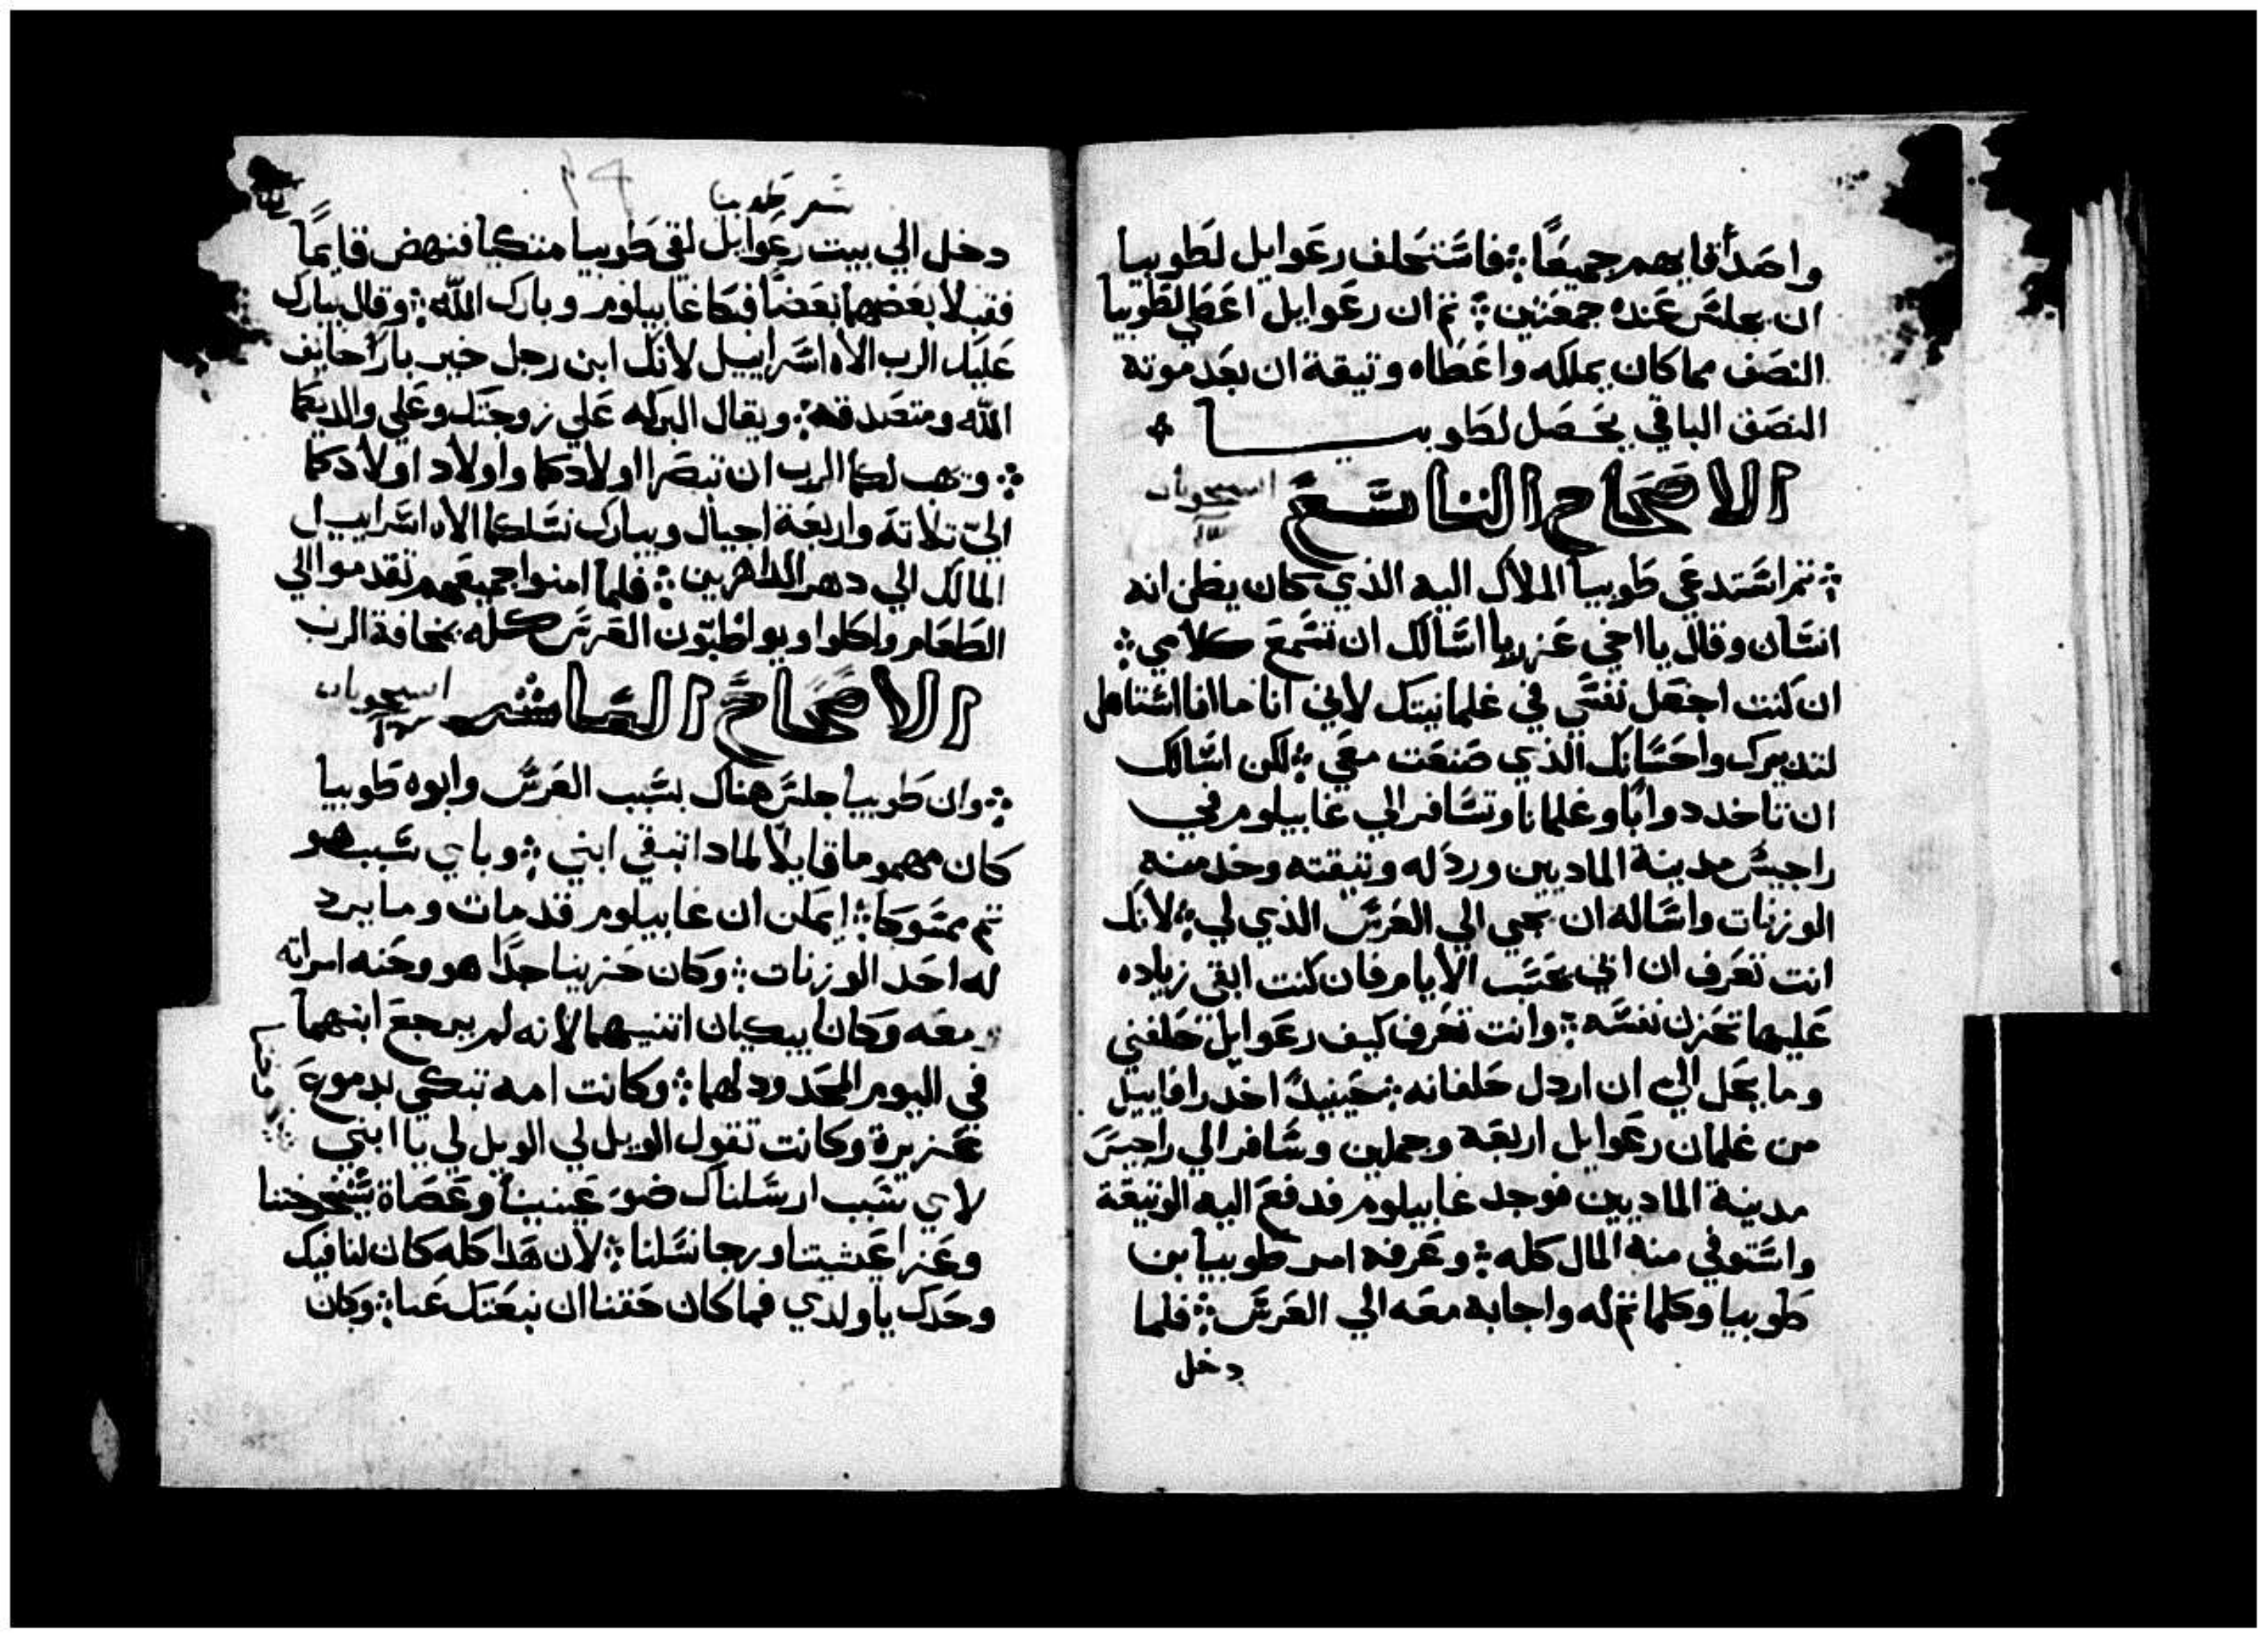 واصدقايهم جميعًا فاستحلف رعوايل لطوبيا
ان يجلس عنده جمعتين ثم ان رعوايل اعطي لطوبيا
النصف مما كان يملكه واعطاه وتيقة ان بعد موته
النصف الباقي يحصل لطوبيا
الاصحاح التاسع
ثم استدعي طوبيا الملاك اليه الذي كان يظن انه
انسان وقال يا اخي عزريا اسالك ان تسمع كلامي
ان كنت اجعل نفسي في غلمانيتك لاني انا ما انا استاهل
لتدبيرك واحسانك الذي صنعت معي لكن اسالك
ان تاخد دوابًا وغلمانا وتسافر الي غابيلوم في
راجيس مدينة الماديين ورد له وتيقته وخد منه
الوزنات واساله ان يجي الي العرس الذي لي لانك
انت تعرف ان ابي يحسب الايام فان كنت ابقي زياده
عليها تحزن نفسه وانت تعرف كيف رعوايل حلفني
وما يحل الي ان اردل حلفانه حينيدً اخد رافاييل
من غلمان رعوايل اربعه وجملين وسافر الي راجيس
مدينة الماديين فوجد غابيلوم فدفع اليه الوتيقة
واستوفي منه المال كله وعرفه امر طوبيا بن
طوبيا وكلما تم له واجابه معه الي العرس فلما
دخل
سفر طوبيا
دخل الي بيت رعوايل لقي طوبيا متكيا فنهض قايمًا
فقبلا بعضهما بعضًا فبكا غابيلوم وبارك اللّه وقال يبارك
عليك الرب الاه اسراييل لانك ابن رجل خير بارًا خايف
اللّه ومتصدقه ويقال البركه علي زوجتك وعلي والديكما
ويهب لكما الرب ان تبصرا اولادكما واولاد اولادكما
الي تلاتة واربعة اجيال ويبارك نسلكما الاه اسراييل
المالك الي دهر الداهرين فلما امنوا جميعهم تقدموا الي
الطعام واكلوا ويواظبون العرس كله بمخافة الرب
الاصحاح العاشر
وان طوبيا جلس هناك بسبب العرس وابوه طوبيا
كان مهموما قايلًا لمادا تبقي ابني وباي سبب هو
تم ممسوكا ايمكن ان غابيلوم قد مات وما يرد
له احد الوزنات وكان حزينا جدًا هو وحنه امراته
معه وكانا يبكيان اتنيهما لانه لم يرجع ابنهما
في اليوم المحدود لهما وكانت امه تبكي بدموع
غزيرة وكانت تقول الويل لي الويل لي يا ابني
لاي سبب ارسلناك ضو عينينا وعصاة شيخوختنا
وعزا عيشتنا ورجا نسلنا لان هدا كله كان لنا فيك
وحدك يا ولدي فما كان حقنا ان نبعتك عنا وكان